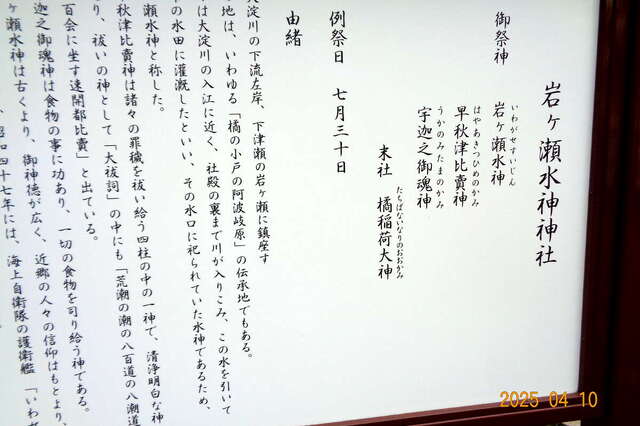 岩ヶ瀬水神神社
御祭神
いわがせすいじん
岩ヶ瀬水神
はやあきつひめのかみ
早秋津比賣神
うかのみたまのかみ
宇迦之御魂神
末社 橘稲荷大神
たちばないなりのおおかみ
例祭日 七月三十日
由緒
大淀川の下流左岸、下津瀬の岩ヶ瀬に鎮座す
地は、いわゆる「橘の小戸の阿波岐原」の伝承地でもある。
は大淀川の入江に近く、社殿の裏まで川が入りこみ、この水を引いて
の水田に灌漑したといい、その水口に祀られていた水神であるため、
瀬水神と称した。
秋津比賣神は諸々の罪穢を祓い給う四柱の中の一神で、清浄明白な神
り、祓いの神として「大祓詞」の中にも「荒潮の潮の八百道の八潮道
百会に坐す速開都比賣」と出ている。
迦之御魂神は食物の事に功あり、一切の食物を司り給う神である。
ヶ瀬水神は古くより、御神徳が広く、近郷の人々の信仰はもとより、
昭和四十七年には、海上自衛隊の護衛艦「いわ
2025 04 10